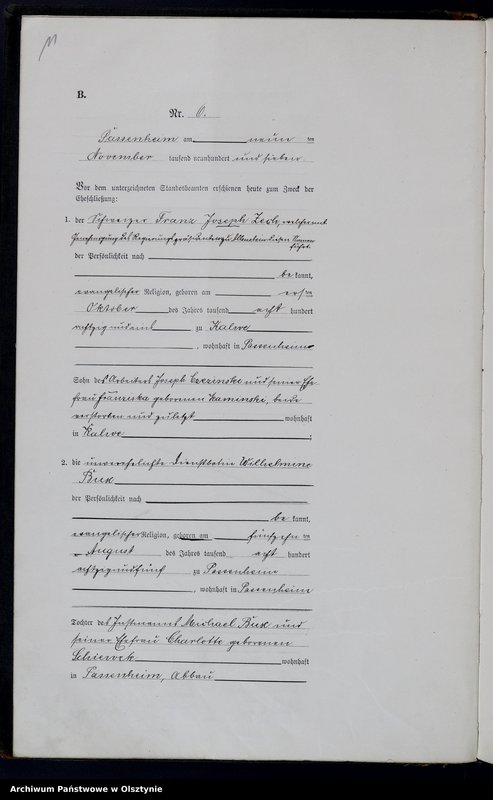 11
B.
Nr. 6.
Passenheim am neun ten
November tausend neunhundert und sieben
Vor dem unterzeichneten Standesbeamten erschienen heute zum Zweck der
Eheschließung:
1. der Schweizer Franz Joseph Zech, welcher mit
Genehmigung des Regierungspräsidenten zu Allenstein diesen Namen
führt.
der Persönlichkeit nach
be kannt,
evangelischer Religion, geboren am ersten
Oktober des Jahres tausend acht hundert
achtzig und eins zu Kalwe
, wohnhaft in Passenheim
Sohn des Arbeiters Joseph Czezinski und seiner Ehe
frau Franziska geborenen Kaminski, beide
verstorben und zuletzt wohnhaft
in Kalwe
2. die unverehelichte Dienstbotin Wilhelmine
Bux
der Persönlichkeit nach
be kannt,
evangelischer Religion, geboren am fünfzehn ten
August des Jahres tausend acht hundert
achtzig und fünf zu Passenheim
, wohnhaft in Passenheim
Tochter des Instmanns Michael Bux und
seiner Ehefrau Charlotte geborenen
wohnhaft
in Passenheim, Abbau
Archiwum Państwowe w Olsztynie